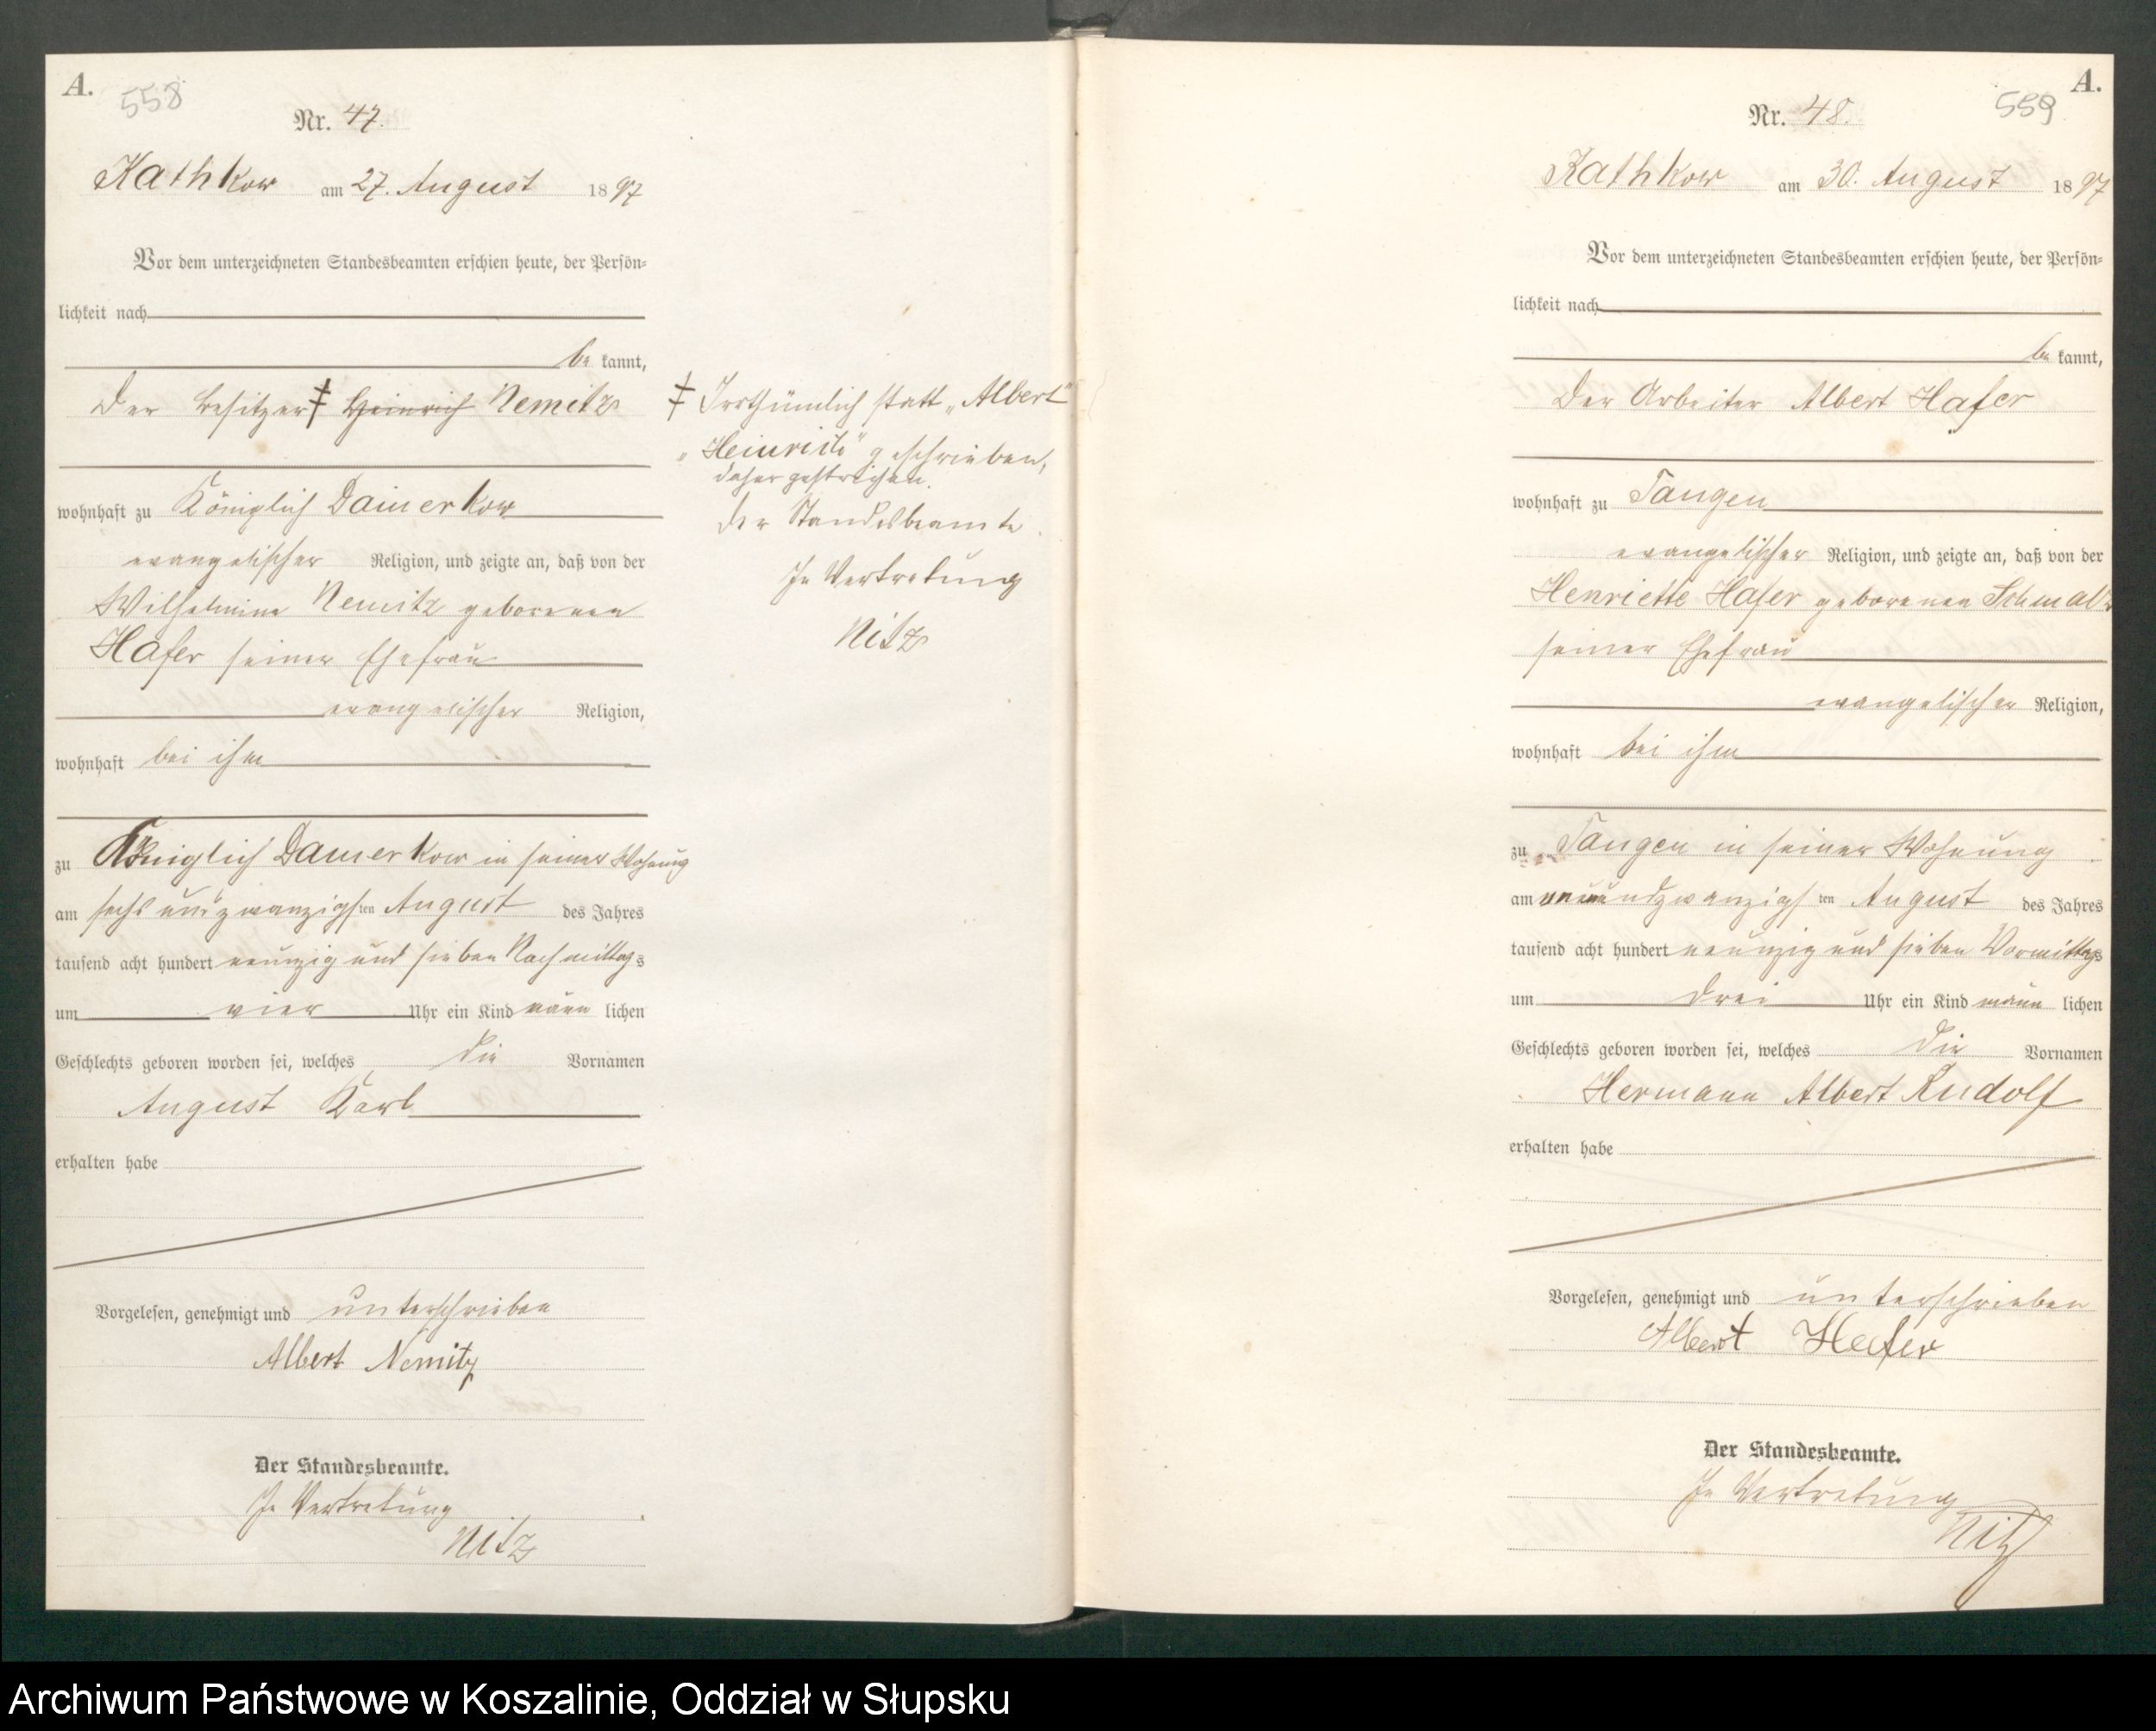 A.
558
Nr. 47.
Kathkow am 27. August 1897
Vor dem unterzeichneten Standesbeamten erschien heute, der Persön=
lichkeit nach
be kannt,
der Besitzer ‡ Heinrich Nemitz
wohnhaft zu Königlich Damerkow
evangelischer Religion, und zeigte an, daß von der
Wilhelmine Nemitz geborenen
Hafer seiner Ehefrau
evangelischer Religion,
wohnhaft bei ihm
zu Königlich Damerkow in seiner Wohnung
am sechs und zwanzigsten August des Jahres
tausend acht hundert neunzig und sieben Nachmittags
um vier Uhr ein Kind männlichen
Geschlechts geboren worden sei, welches die Vornamen
August Karl
erhalten habe
Vorgelesen, genehmigt und unterschrieben
Albert Nemitz
Der Standesbeamte.
In Vertretung
Nitz
‡ Irrthümlich statt „Albert"
„Heinrich" geschrieben,
daher gestrichen.
Der Standesbeamte
In Vertretung
Nitz
A.
559
Nr. 48.
Kathkow am 30. August 1897
Vor dem unterzeichneten Standesbeamten erschien heute, der Persön=
lichkeit nach
be kannt,
der Arbeiter Albert Hafer
wohnhaft zu Tangen
evangelischer Religion, und zeigte an, daß von der
Henriette Hafer geborenen Schmalz
seiner Ehefrau
evangelischer Religion,
wohnhaft bei ihm
zu Tangen in seiner Wohnung
am neunundzwanzigsten August des Jahres
tausend acht hundert neunzig und sieben Vormittags
um drei Uhr ein Kind männlichen
Geschlechts geboren worden sei, welches die Vornamen
Hermann Albert Rudolf
erhalten habe
Vorgelesen, genehmigt und unterschrieben
Albert Hafer
Der Standesbeamte.
In Vertretung
Nitz
Archiwum Państwowe w Koszalinie, Oddział w Słupsku